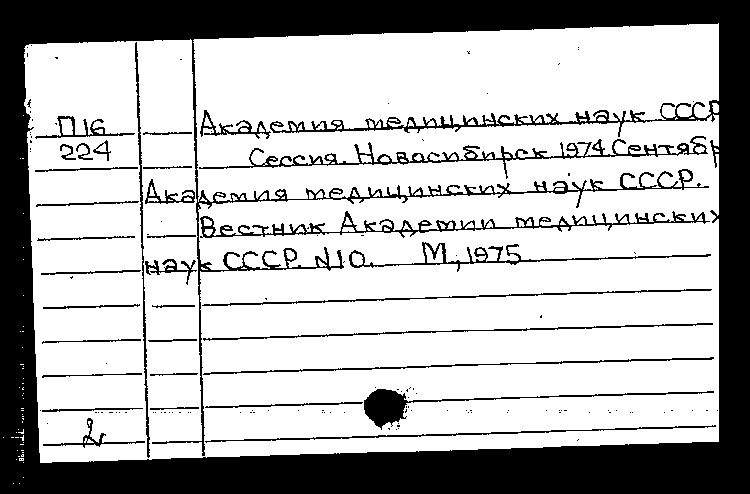 П16 Академия медицинских наук СССР
224 Сессия. Новосибирск 1974. Сентябр
Академия медицинских наук СССР.
Вестник Академии медицинских
наук СССР. N10. М, 1975
2